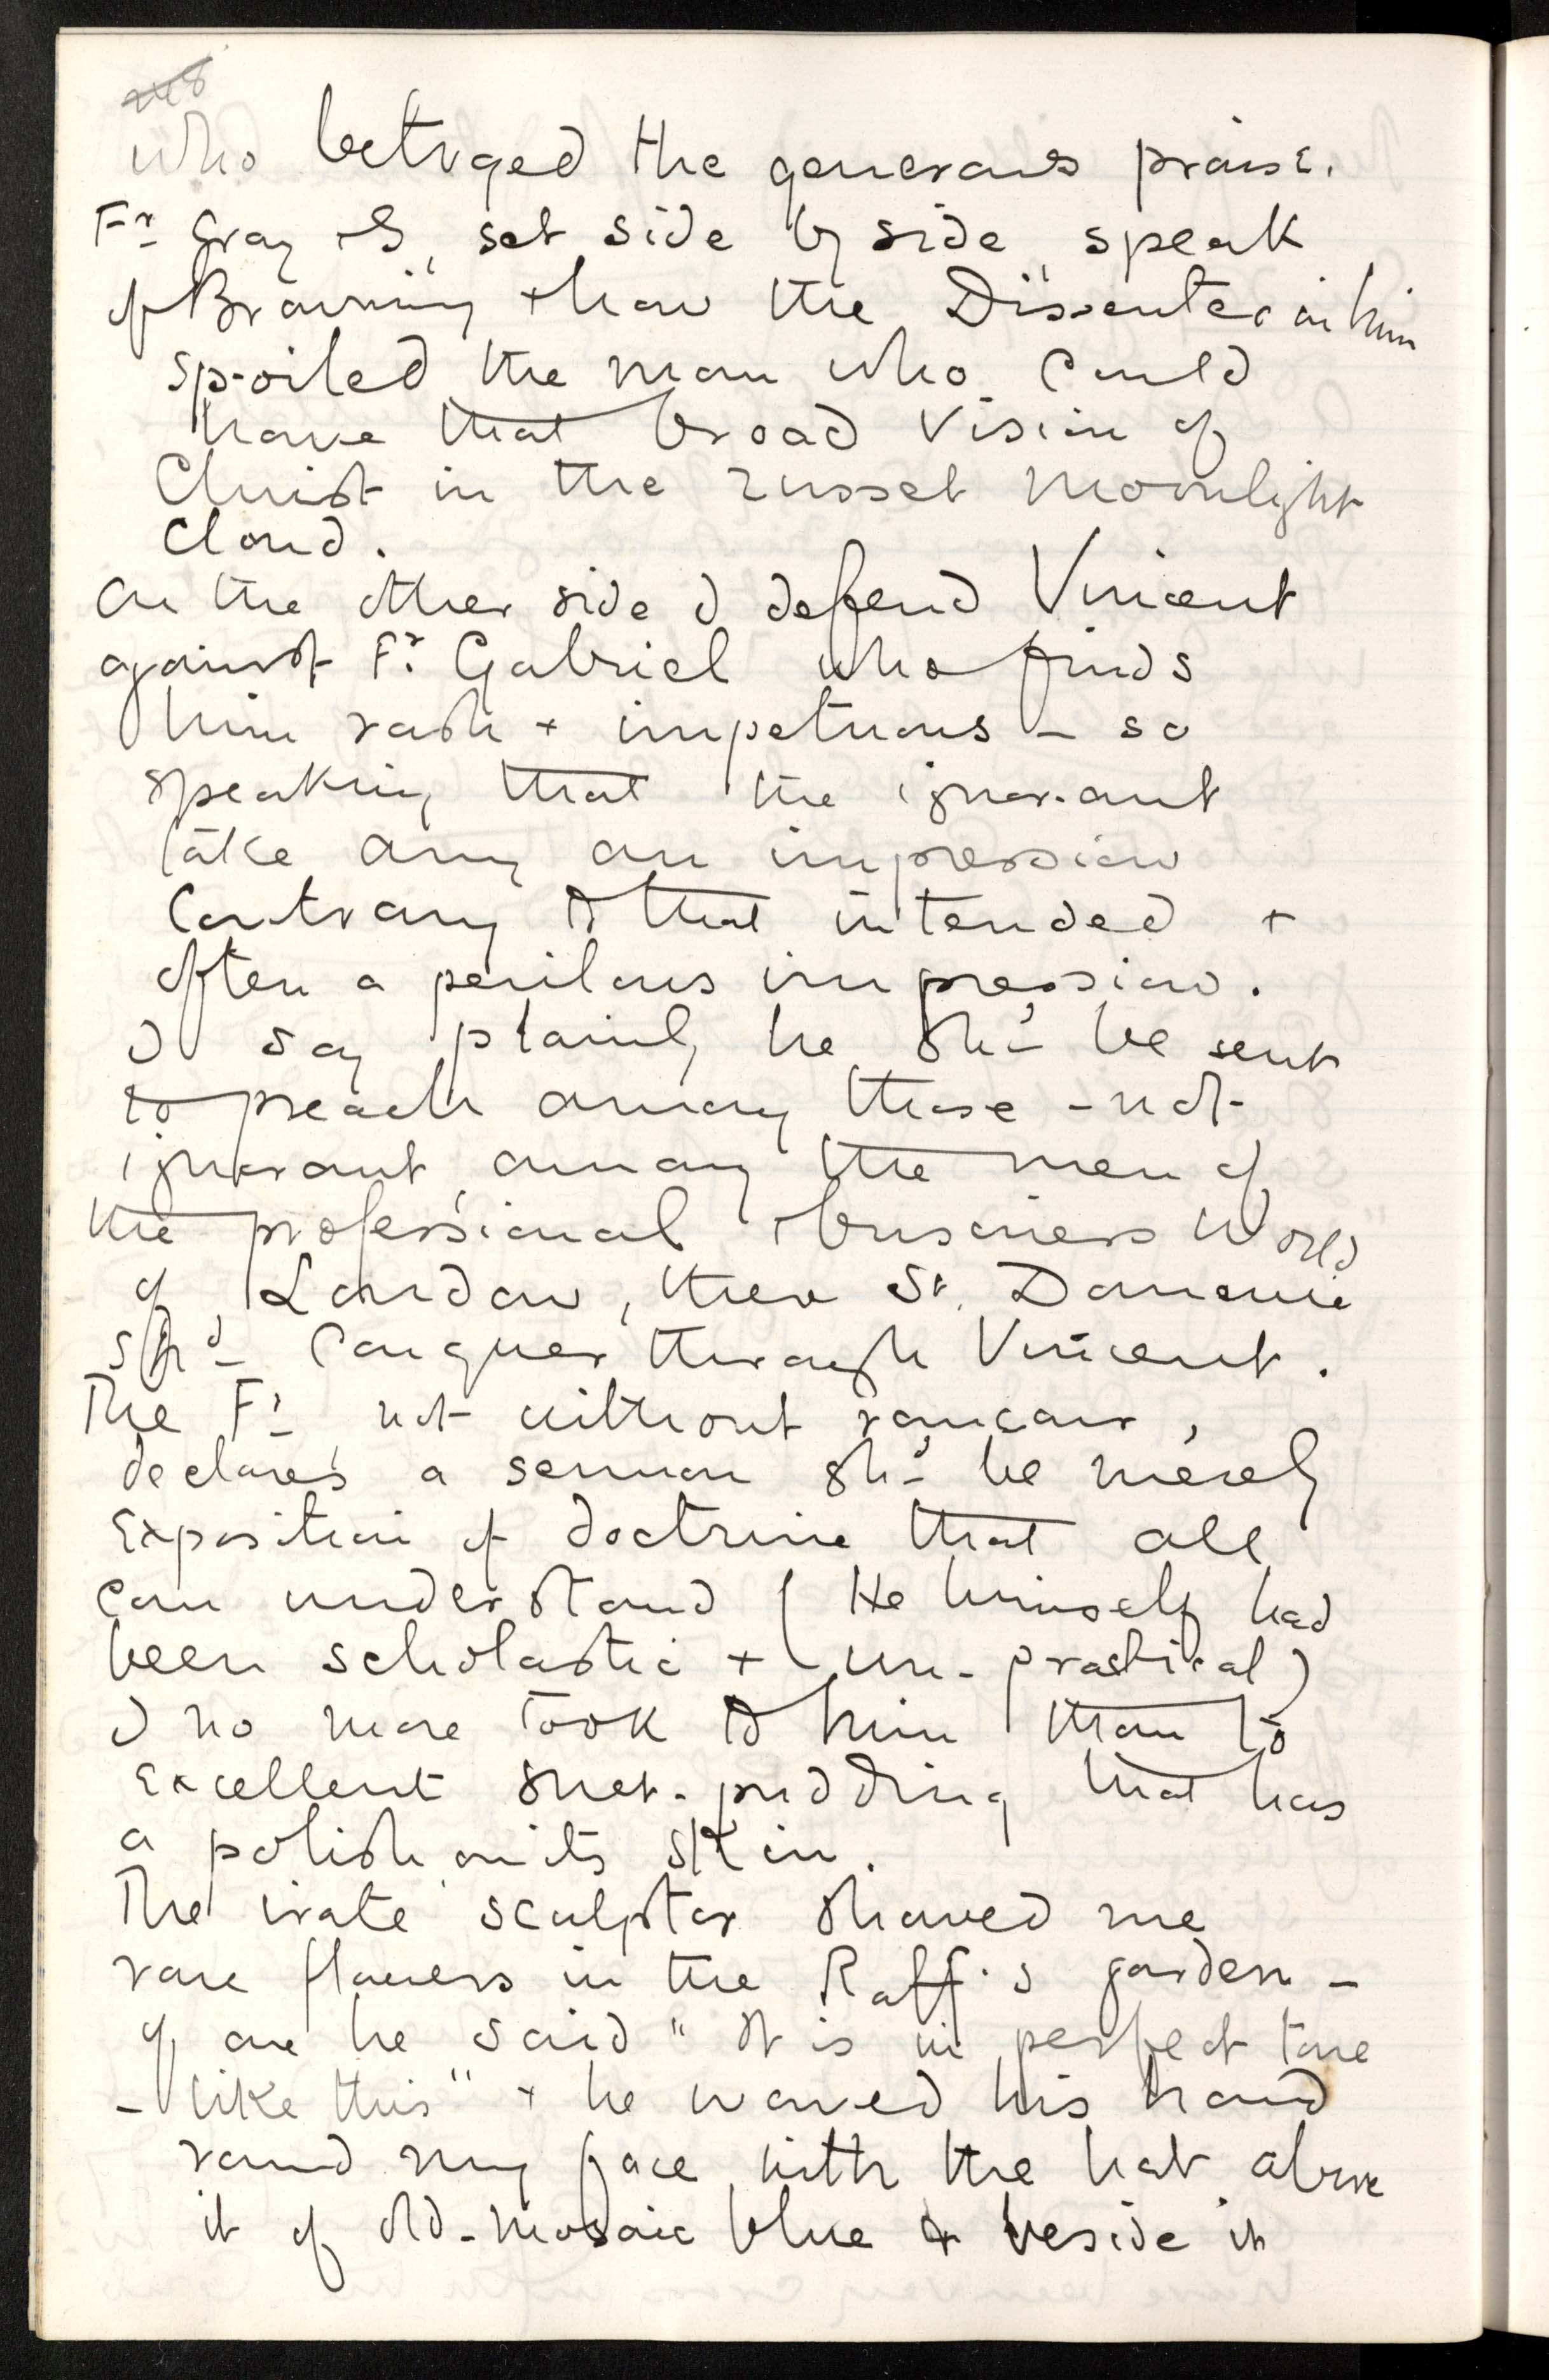 who betrayed the generous praise.
Fr Gray & I, set side by side, speak
of Browning & how the Dissenter in him
spoiled the man who could
have that broad vision of
Christ in the russet moonlight
cloud.
On the other side I defend Vincent
against Fr. Gabriel who finds
him rash & impetuous – so
speaking that the ignorant
take away an impression
contrary to that intended &
often a perilous impression.
I say plainly he shd be sent
to preach among those – not
ignorant, among the men of
the professional & business world
of London, there St. Dominic
shd conquer through Vincent.
The Fr not without rancour,
declares a sermon shd be merely
exposition of doctrine that all
can understand (He himself had
been scholastic & un-practical)
I no more took to him than to
excellent suet-pudding that has
a polish on its skin.
The irate sculptor showed me
rare flowers in the Raff's garden –
of one he said "It is in perfect tone
– like this" & he waved his hand
round my face with the hat above
it of old-mosaic blue & beside it